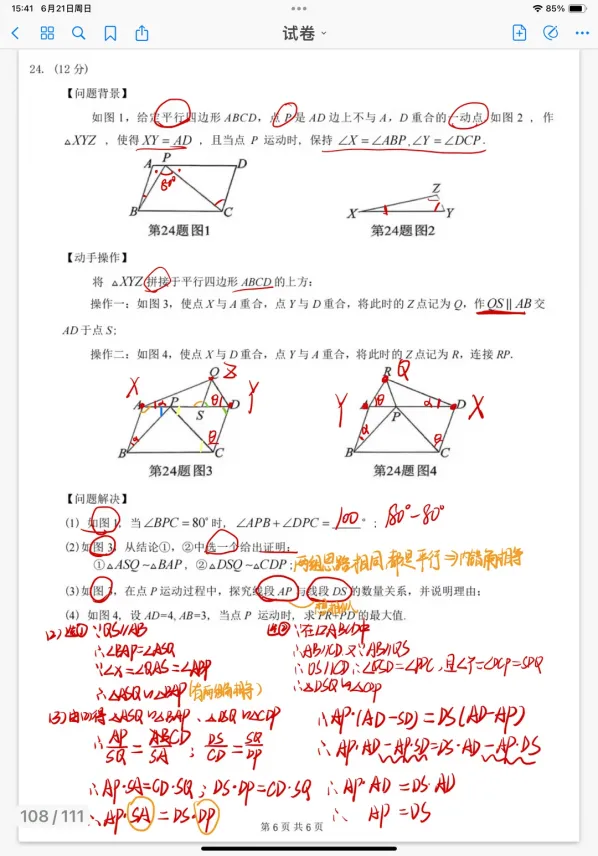 15:41 6月21日周日
85%
试卷
24. (12 分)
【问题背景】
如图 1，给定平行四边形 ABCD，点 P 是 AD 边上不与 A，D 重合的一动点 如图 2 ，作
△XYZ ，使得 XY = AD ，且当点 P 运动时，保持 ∠X = ∠ABP，∠Y = ∠DCP .
A P D
80°
B C
第24题图1
X Z Y
第24题图2
【动手操作】
将 △XYZ 拼接于平行四边形 ABCD 的上方：
操作一：如图 3，使点 X 与 A 重合，点 Y 与 D 重合，将此时的 Z 点记为 Q，作 QS∥AB 交
AD 于点 S；
操作二：如图 4，使点 X 与 D 重合，点 Y 与 A 重合，将此时的 Z 点记为 R，连接 RP.
X Q Z Y
A P S θ D
B α C θ
第24题图3
R Q
Y A θ α D X
P
B α C θ
第24题图4
【问题解决】
(1) 如图 1，当 ∠BPC = 80° 时，∠APB + ∠DPC = 100 °； 180°-80°
(2) 如图 3，从结论①，②中选一个给出证明：
①△ASQ ∽△BAP，②△DSQ ∽△CDP； 两组思路相同 都是平行⇒内错角相等
(3) 如图 3，在点 P 运动过程中，探究线段 AP 与线段 DS 的数量关系，并说明理由；
(4) 如图 4，设 AD=4, AB=3，当点 P 运动时，求 PR+PD 的最大值.
(2) 选① ∵QS∥AB
∴∠BAP=∠ASQ
∵∠X=∠QAS=∠ABP
∴△ASQ∽△BAP (有两组角相等)
选② ∵在▱ABCD中
∴AB∥CD 又∵AB∥QS
∴QS∥CD ∴∠QSD=∠DPC, 且∠Y=∠DCP=∠SDQ
∴△DSQ∽△CDP
(3) 由(2)得△ASQ∽△BAP、△DSQ∽△CDP
∴ AP/SQ = CD/SA ; DS/CD = SQ/DP
∴AP·SA=CD·SQ; DS·DP=CD·SQ
∴AP·SA=DS·DP
∴AP·(AD-SD)=DS(AD-AP)
∴AP·AD-AP·SD=DS·AD-AP·DS
∴AP·AD=DS·AD
∴ AP=DS
108 / 111
第 6 页 共 6 页